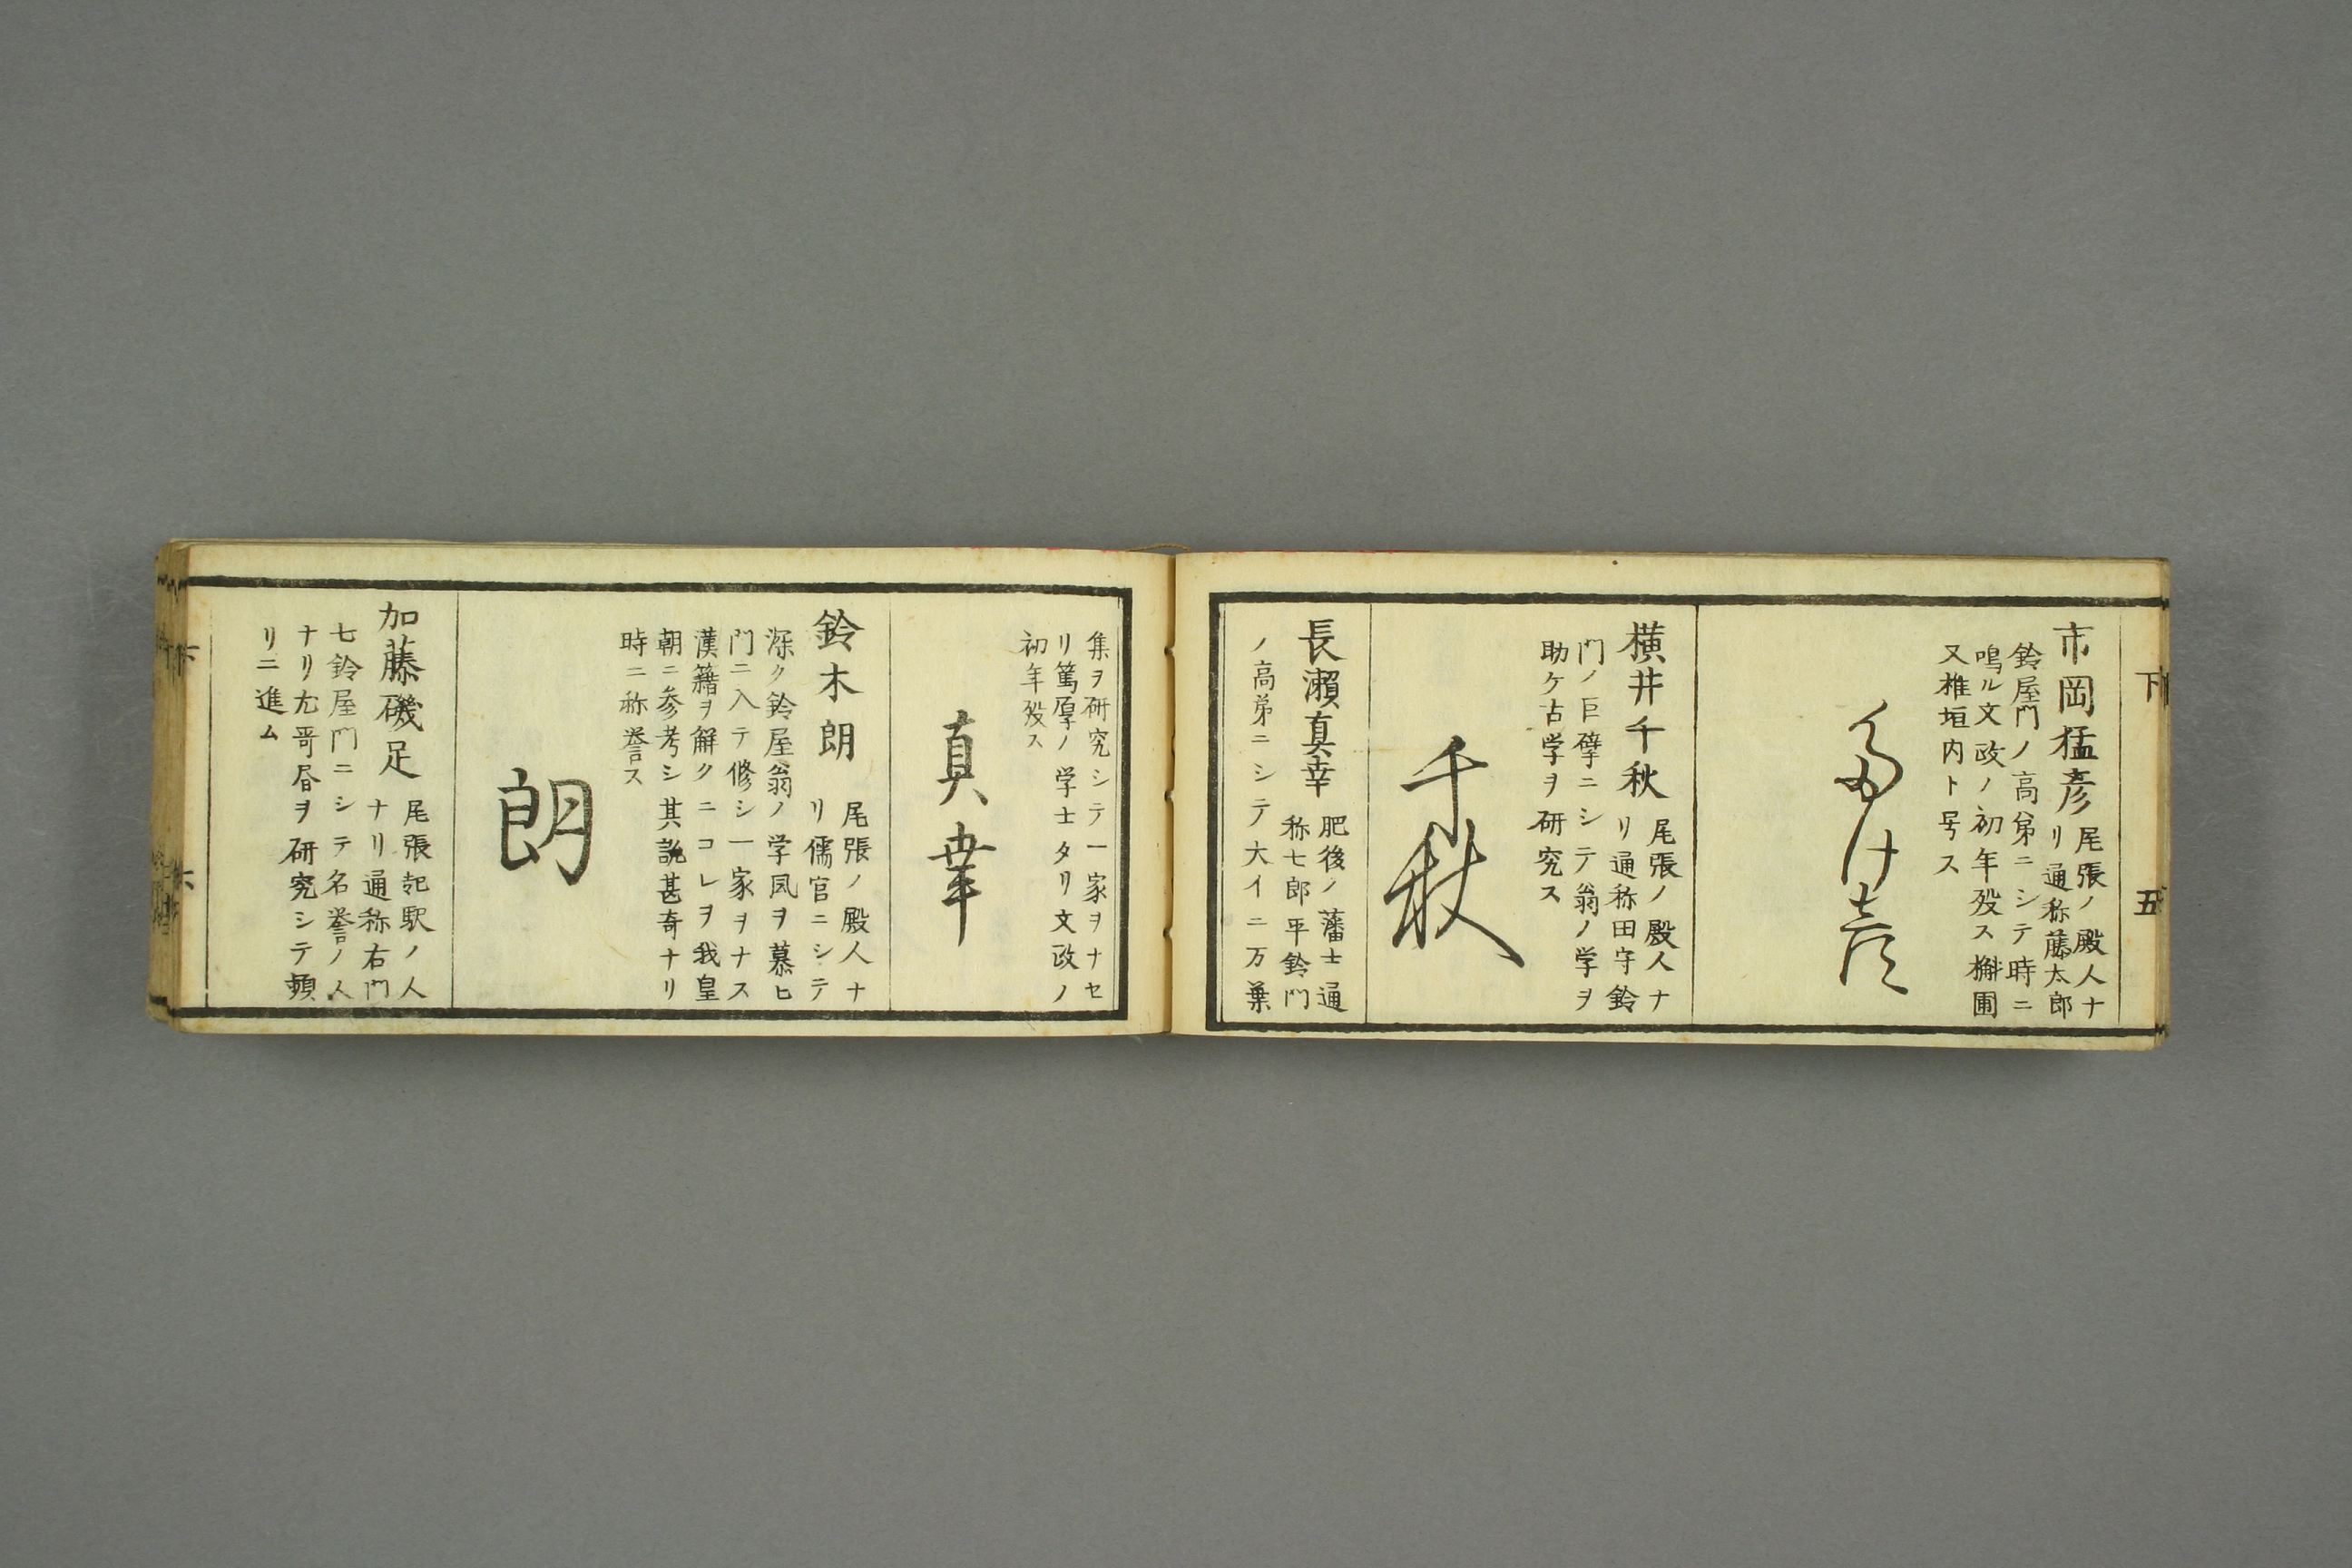 下 五
市岡猛彦 尾張ノ殿人ナ
リ通称藤太郎
鈴屋門ノ高弟ニシテ時ニ
鳴ル文政ノ初年歿ス櫤圃
又椎垣内ト号ス
多け彦
横井千秋 尾張ノ殿人ナ
リ通称田守鈴
門ノ巨擘ニシテ翁ノ学ヲ
助ケ古学ヲ研究ス
千秋
長瀬真幸 肥後ノ藩士通
称七郎平鈴門
ノ高弟ニシテ大イニ万葉
集ヲ研究シテ一家ヲナセ
リ篤厚ノ学士タリ文政ノ
初年歿ス
真幸
鈴木朗 尾張ノ殿人ナ
リ儒官ニシテ
深ク鈴屋翁ノ学風ヲ慕ヒ
門ニ入テ修シ一家ヲナス
漢籍ヲ解クニコレヲ我皇
朝ニ参考シ其説甚奇ナリ
時ニ称誉ス
朗
加藤磯足 尾張起駅ノ人
ナリ通称右門
七鈴屋門ニシテ名誉ノ人
ナリ尤哥昏ヲ研究シテ頻
リニ進ム
下 六